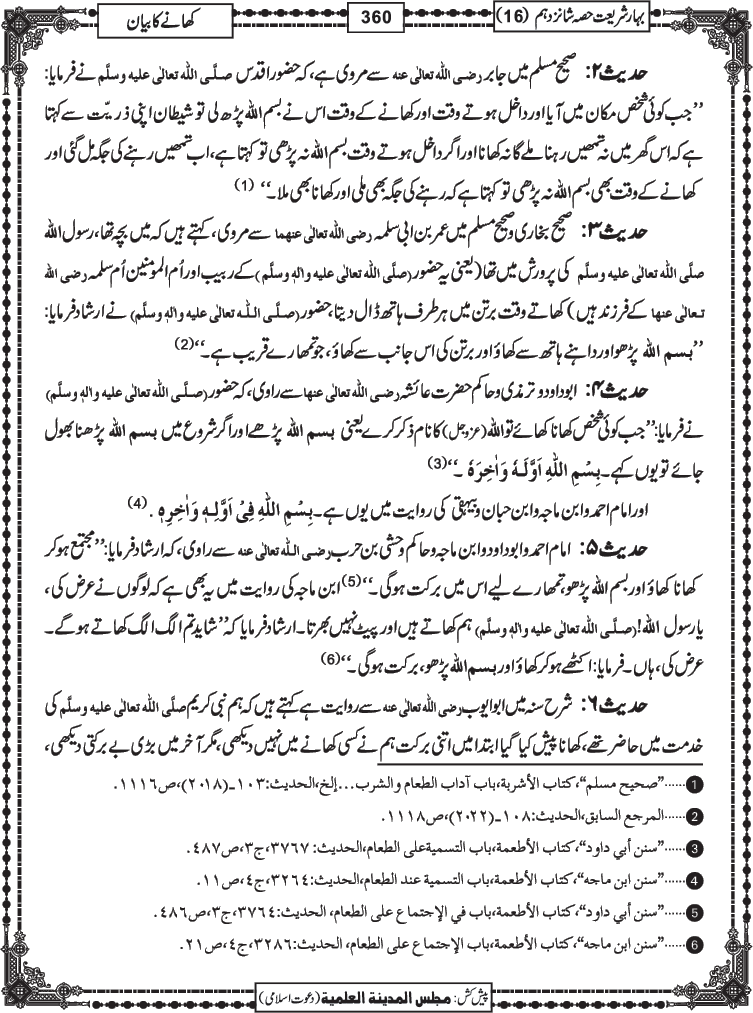 بہارشریعت حصہ شانزدہم (16)
360
کھانے کا بیان
حدیث ۲: صحیح مسلم میں جابر رضی اللہ تعالٰی عنہ سے مروی ہے، کہ حضور اقدس صلَّی اللہ تعالٰی علیہ وسلَّم نے فرمایا:
’’جب کوئی شخص مکان میں آیا اور داخل ہوتے وقت اور کھانے کے وقت اس نے بسم اللہ پڑھ لی تو شیطان اپنی ذریّت سے کہتا
ہے کہ اس گھر میں نہ تمھیں رہنا ملے گا نہ کھانا اور اگر داخل ہوتے وقت بسم اللہ نہ پڑھی تو کہتا ہے، اب تمھیں رہنے کی جگہ مل گئی اور
کھانے کے وقت بھی بسم اللہ نہ پڑھی تو کہتا ہے کہ رہنے کی جگہ بھی ملی اور کھانا بھی ملا۔‘‘ (1)
حدیث ۳: صحیح بخاری و صحیح مسلم میں عمر بن ابی سلمہ رضی اللہ تعالٰی عنہما سے مروی، کہتے ہیں کہ میں بچہ تھا، رسول اللہ
صلَّی اللہ تعالٰی علیہ وسلَّم کی پرورش میں تھا (یعنی یہ حضور (صلَّی اللہ تعالٰی علیہ والہٖ وسلَّم) کے ربیب اور اُم المومنین اُم سلمہ رضی اللہ
تعالٰی عنہا کے فرزند ہیں) کھاتے وقت برتن میں ہر طرف ہاتھ ڈال دیتا، حضور (صلَّی اللہ تعالٰی علیہ والہٖ وسلَّم) نے ارشاد فرمایا:
’’بسم اللہ پڑھو اور داہنے ہاتھ سے کھاؤ اور برتن کی اس جانب سے کھاؤ، جو تمھارے قریب ہے۔‘‘ (2)
حدیث ۴: ابوداود و ترمذی و حاکم حضرت عائشہ رضی اللہ تعالٰی عنہا سے راوی، کہ حضور (صلَّی اللہ تعالٰی علیہ والہٖ وسلَّم)
نے فرمایا: ’’جب کوئی شخص کھانا کھائے تو اللہ (عزوجل) کا نام ذکر کرے یعنی بسم اللہ پڑھے اور اگر شروع میں بسم اللہ پڑھنا بھول
جائے تو یوں کہے۔ بِسْمِ اللّٰہِ اَوَّلَہٗ وَاٰخِرَہٗ ۔‘‘ (3)
اور امام احمد و ابن ماجہ و ابن حبان و بیہقی کی روایت میں یوں ہے۔ بِسْمِ اللّٰہِ فِیْ اَوَّلِہٖ وَاٰخِرِہٖ . (4)
حدیث ۵: امام احمد و ابوداود و ابن ماجہ و حاکم وحشی بن حرب رضی اللہ تعالٰی عنہ سے راوی، کہ ارشاد فرمایا: ’’مجتمع ہوکر
کھانا کھاؤ اور بسم اللہ پڑھو، تمھارے لیے اس میں برکت ہوگی۔‘‘ (5) ابن ماجہ کی روایت میں یہ بھی ہے کہ لوگوں نے عرض کی،
یارسول اللہ! (صلَّی اللہ تعالٰی علیہ والہٖ وسلَّم) ہم کھاتے ہیں اور پیٹ نہیں بھرتا۔ ارشاد فرمایا کہ ’’شاید تم الگ الگ کھاتے ہوگے۔
عرض کی، ہاں۔ فرمایا: اکٹھے ہوکر کھاؤ اور بسم اللہ پڑھو، برکت ہوگی۔‘‘ (6)
حدیث ۶: شرح سنہ میں ابوایوب رضی اللہ تعالٰی عنہ سے روایت ہے کہتے ہیں کہ ہم نبی کریم صلَّی اللہ تعالٰی علیہ وسلَّم کی
خدمت میں حاضر تھے، کھانا پیش کیا گیا ابتدا میں اتنی برکت ہم نے کسی کھانے میں نہیں دیکھی، مگر آخر میں بڑی بے برکتی دیکھی،
1 ......”صحیح مسلم“، کتاب الأشربة، باب آداب الطعام والشرب...إلخ، الحدیث: ۱۰۳۔(۲۰۱۸)، ص۱۱۱۶.
2 ......المرجع السابق، الحدیث: ۱۰۸۔(۲۰۲۲)، ص۱۱۱۸.
3 ......”سنن أبي داود“، کتاب الأطعمة، باب التسمیة علی الطعام، الحدیث: ۳۷۶۷، ج۳، ص۴۸۷.
4 ......”سنن ابن ماجه“، کتاب الأطعمة، باب التسمیة عند الطعام، الحدیث: ۳۲۶۴، ج۴، ص۱۱.
5 ......”سنن أبي داود“، کتاب الأطعمة، باب في الإجتماع علی الطعام، الحدیث: ۳۷۶۴، ج۳، ص۴۸۶.
6 ......”سنن ابن ماجه“، کتاب الأطعمة، باب الإجتماع علی الطعام، الحدیث: ۳۲۸۶، ج۴، ص۲۱.
پیش کش: مجلس المدینة العلمیة (دعوت اسلامی)